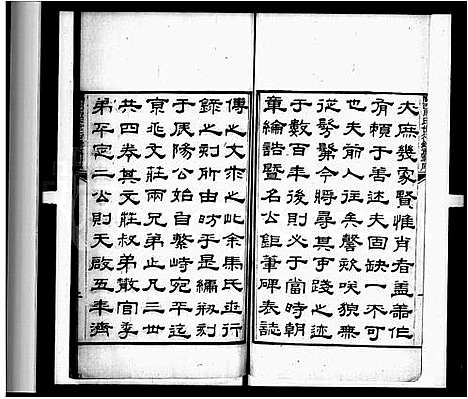 夫庶幾家賢惟肖者盖兼作
有賴于善述夫固缺一不可
也夫前人往矣謦欬咲貌無
從髣髴今將尋其事踐之迹
于數百年後則必于當時朝
章綸誥暨名公鉅筆碑表誌
傳之文求之此余馬氏世行
錄之刻所由昉乎是編剏刻
于辰陽公始自繫峙宛平迄
京兆文莊兩兄弟止凡三世
共四卷其文莊叔弟散官季
弟平定二公則天啟五年濟